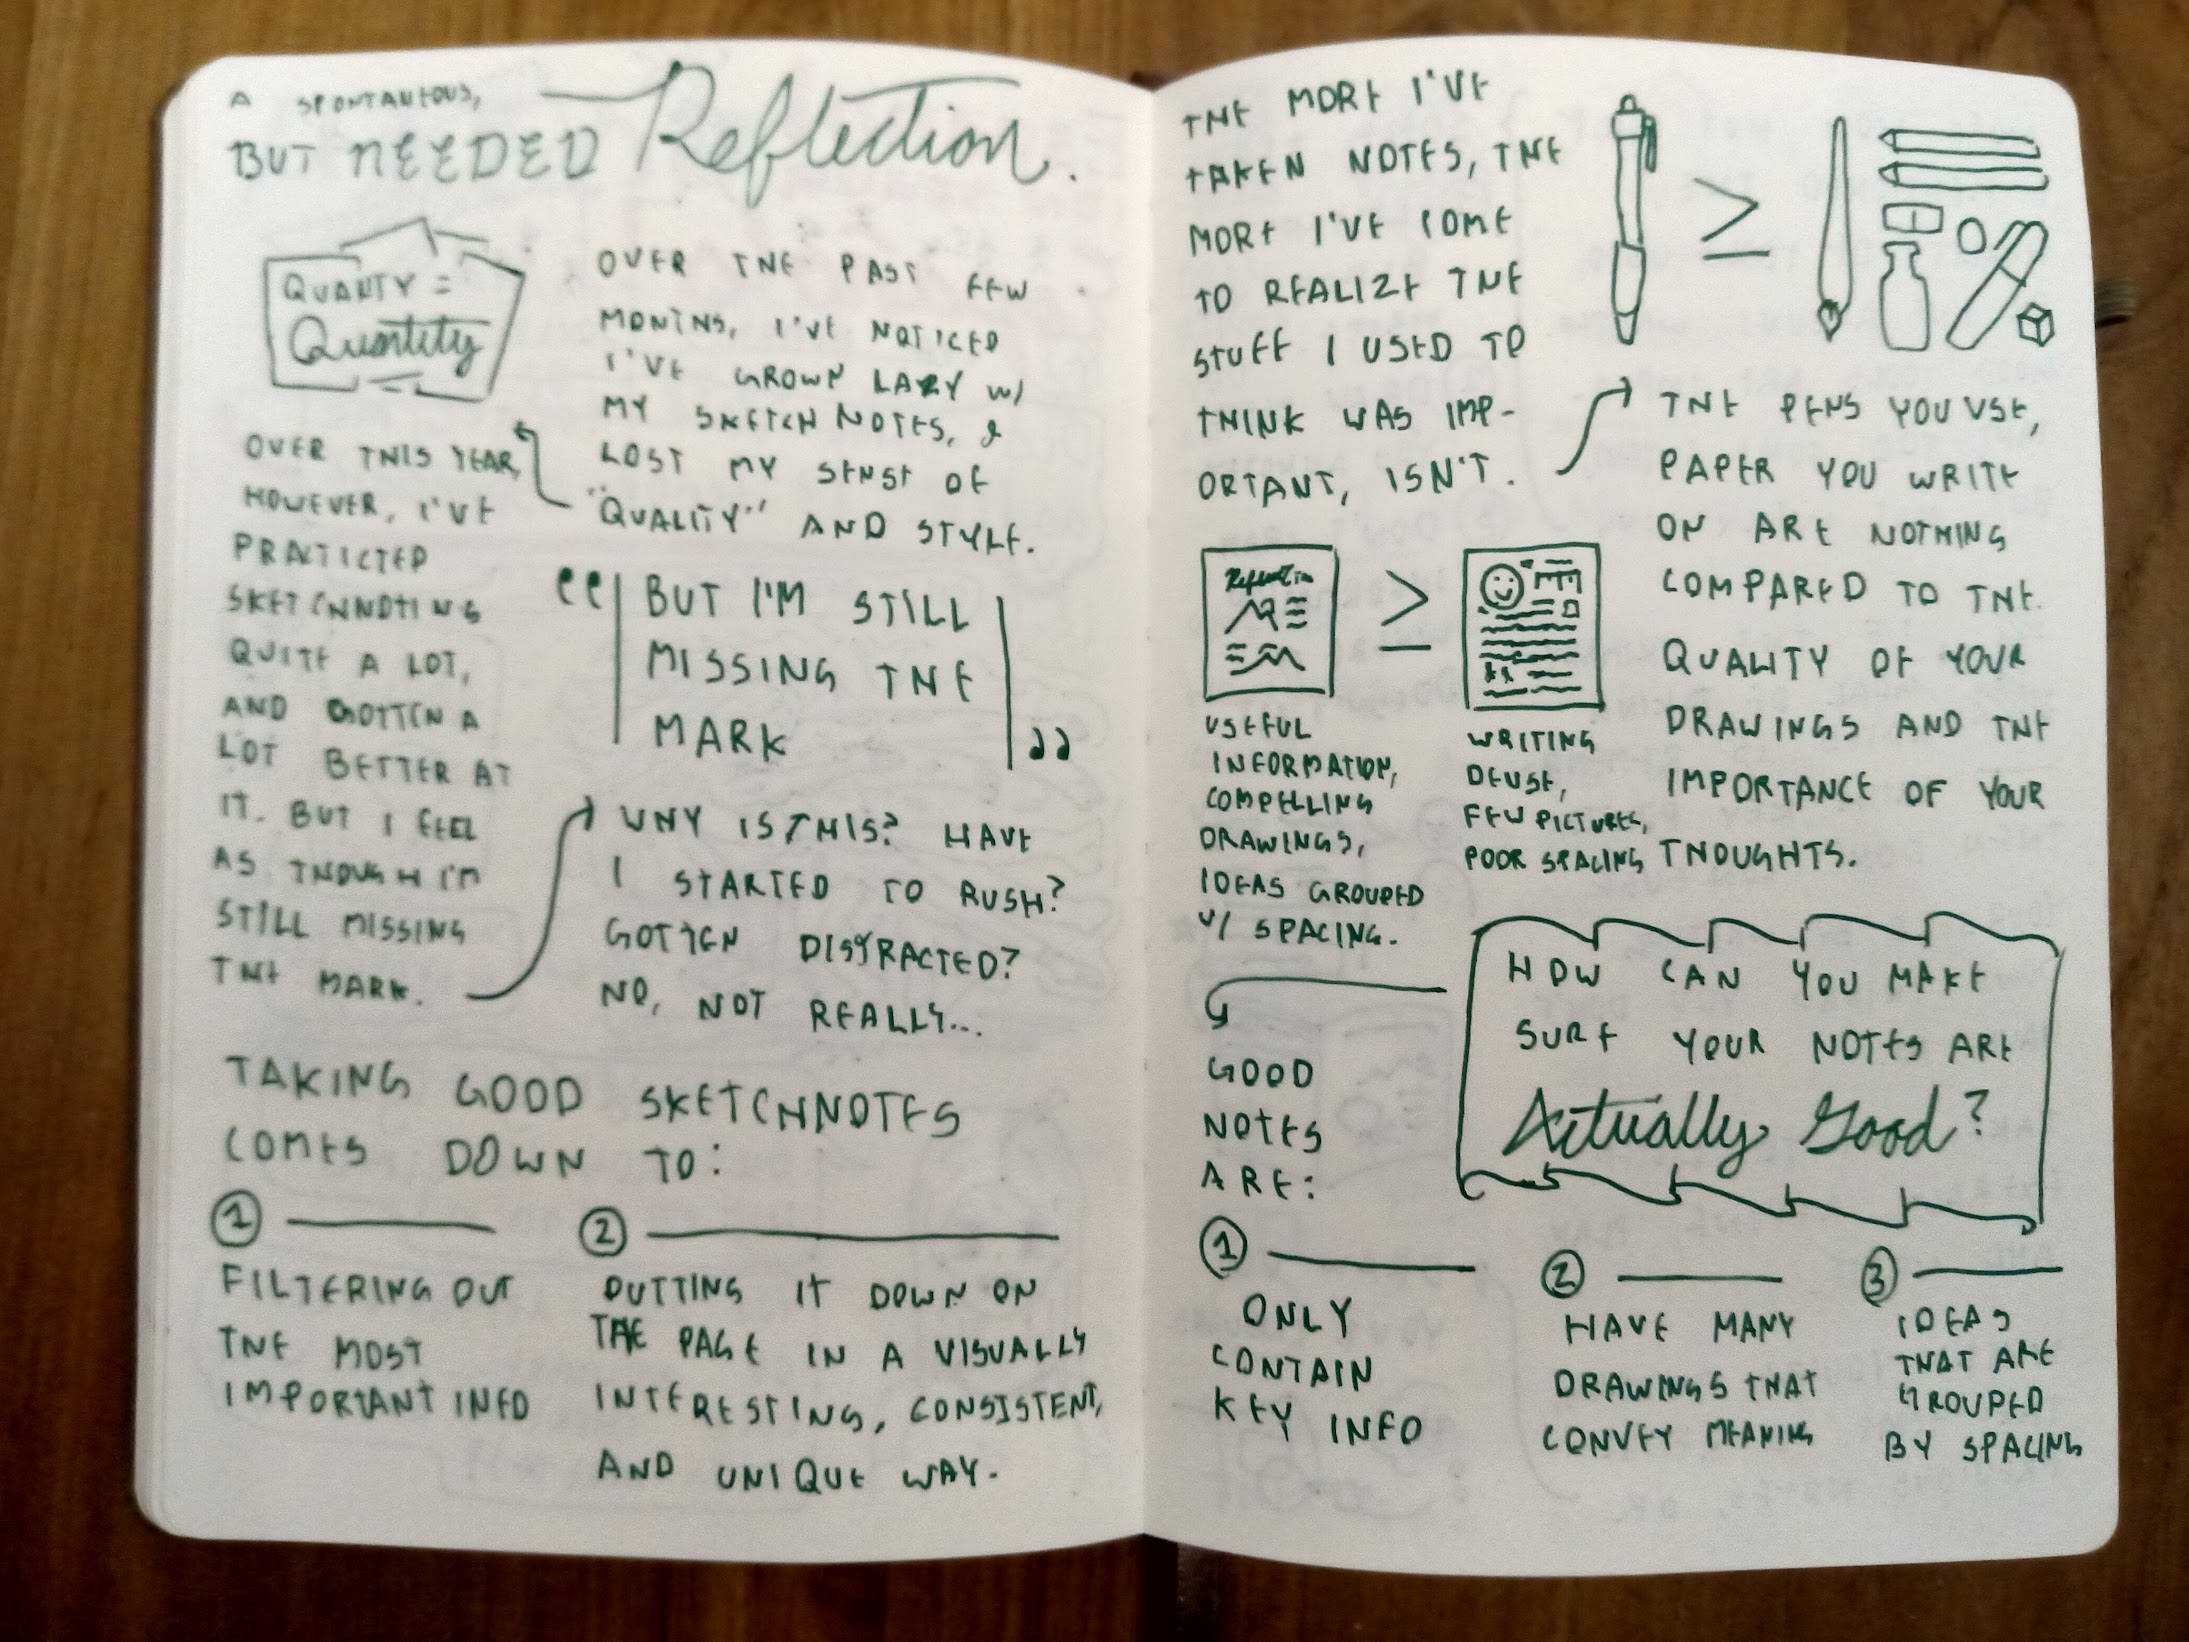 A SPONTANEOUS,
BUT NEEDED Reflection.
QUALITY =
Quantity
OVER THE PAST FEW
MONTHS, I'VE NOTICED
I'VE GROWN LAZY W/
MY SKETCHNOTES, &
LOST MY SENSE OF
"QUALITY" AND STYLE.
OVER THIS YEAR,
HOWEVER, I'VE
PRACTICED
SKETCHNOTING
QUITE A LOT,
AND GOTTEN A
LOT BETTER AT
IT. BUT I FEEL
AS THOUGH I'M
STILL MISSING
THE MARK.
"BUT I'M STILL
MISSING THE
MARK"
WHY IS THIS? HAVE
I STARTED TO RUSH?
GOTTEN DISTRACTED?
NO, NOT REALLY...
TAKING GOOD SKETCHNOTES
COMES DOWN TO:
1
FILTERING OUT
THE MOST
IMPORTANT INFO
2
PUTTING IT DOWN ON
THE PAGE IN A VISUALLY
INTERESTING, CONSISTENT,
AND UNIQUE WAY.
THE MORE I'VE
TAKEN NOTES, THE
MORE I'VE COME
TO REALIZE THE
STUFF I USED TO
THINK WAS IMP-
ORTANT, ISN'T.
≥
THE PENS YOU USE,
PAPER YOU WRITE
ON ARE NOTHING
COMPARED TO THE
QUALITY OF YOUR
DRAWINGS AND THE
IMPORTANCE OF YOUR
THOUGHTS.
Reflection
≥
USEFUL
INFORMATION,
COMPELLING
DRAWINGS,
IDEAS GROUPED
W/ SPACING.
WRITING
DENSE,
FEW PICTURES,
POOR SPACING
HOW CAN YOU MAKE
SURE YOUR NOTES ARE
Actually Good?
GOOD
NOTES
ARE:
1
ONLY
CONTAIN
KEY INFO
2
HAVE MANY
DRAWINGS THAT
CONVEY MEANING
3
IDEAS
THAT ARE
GROUPED
BY SPACING